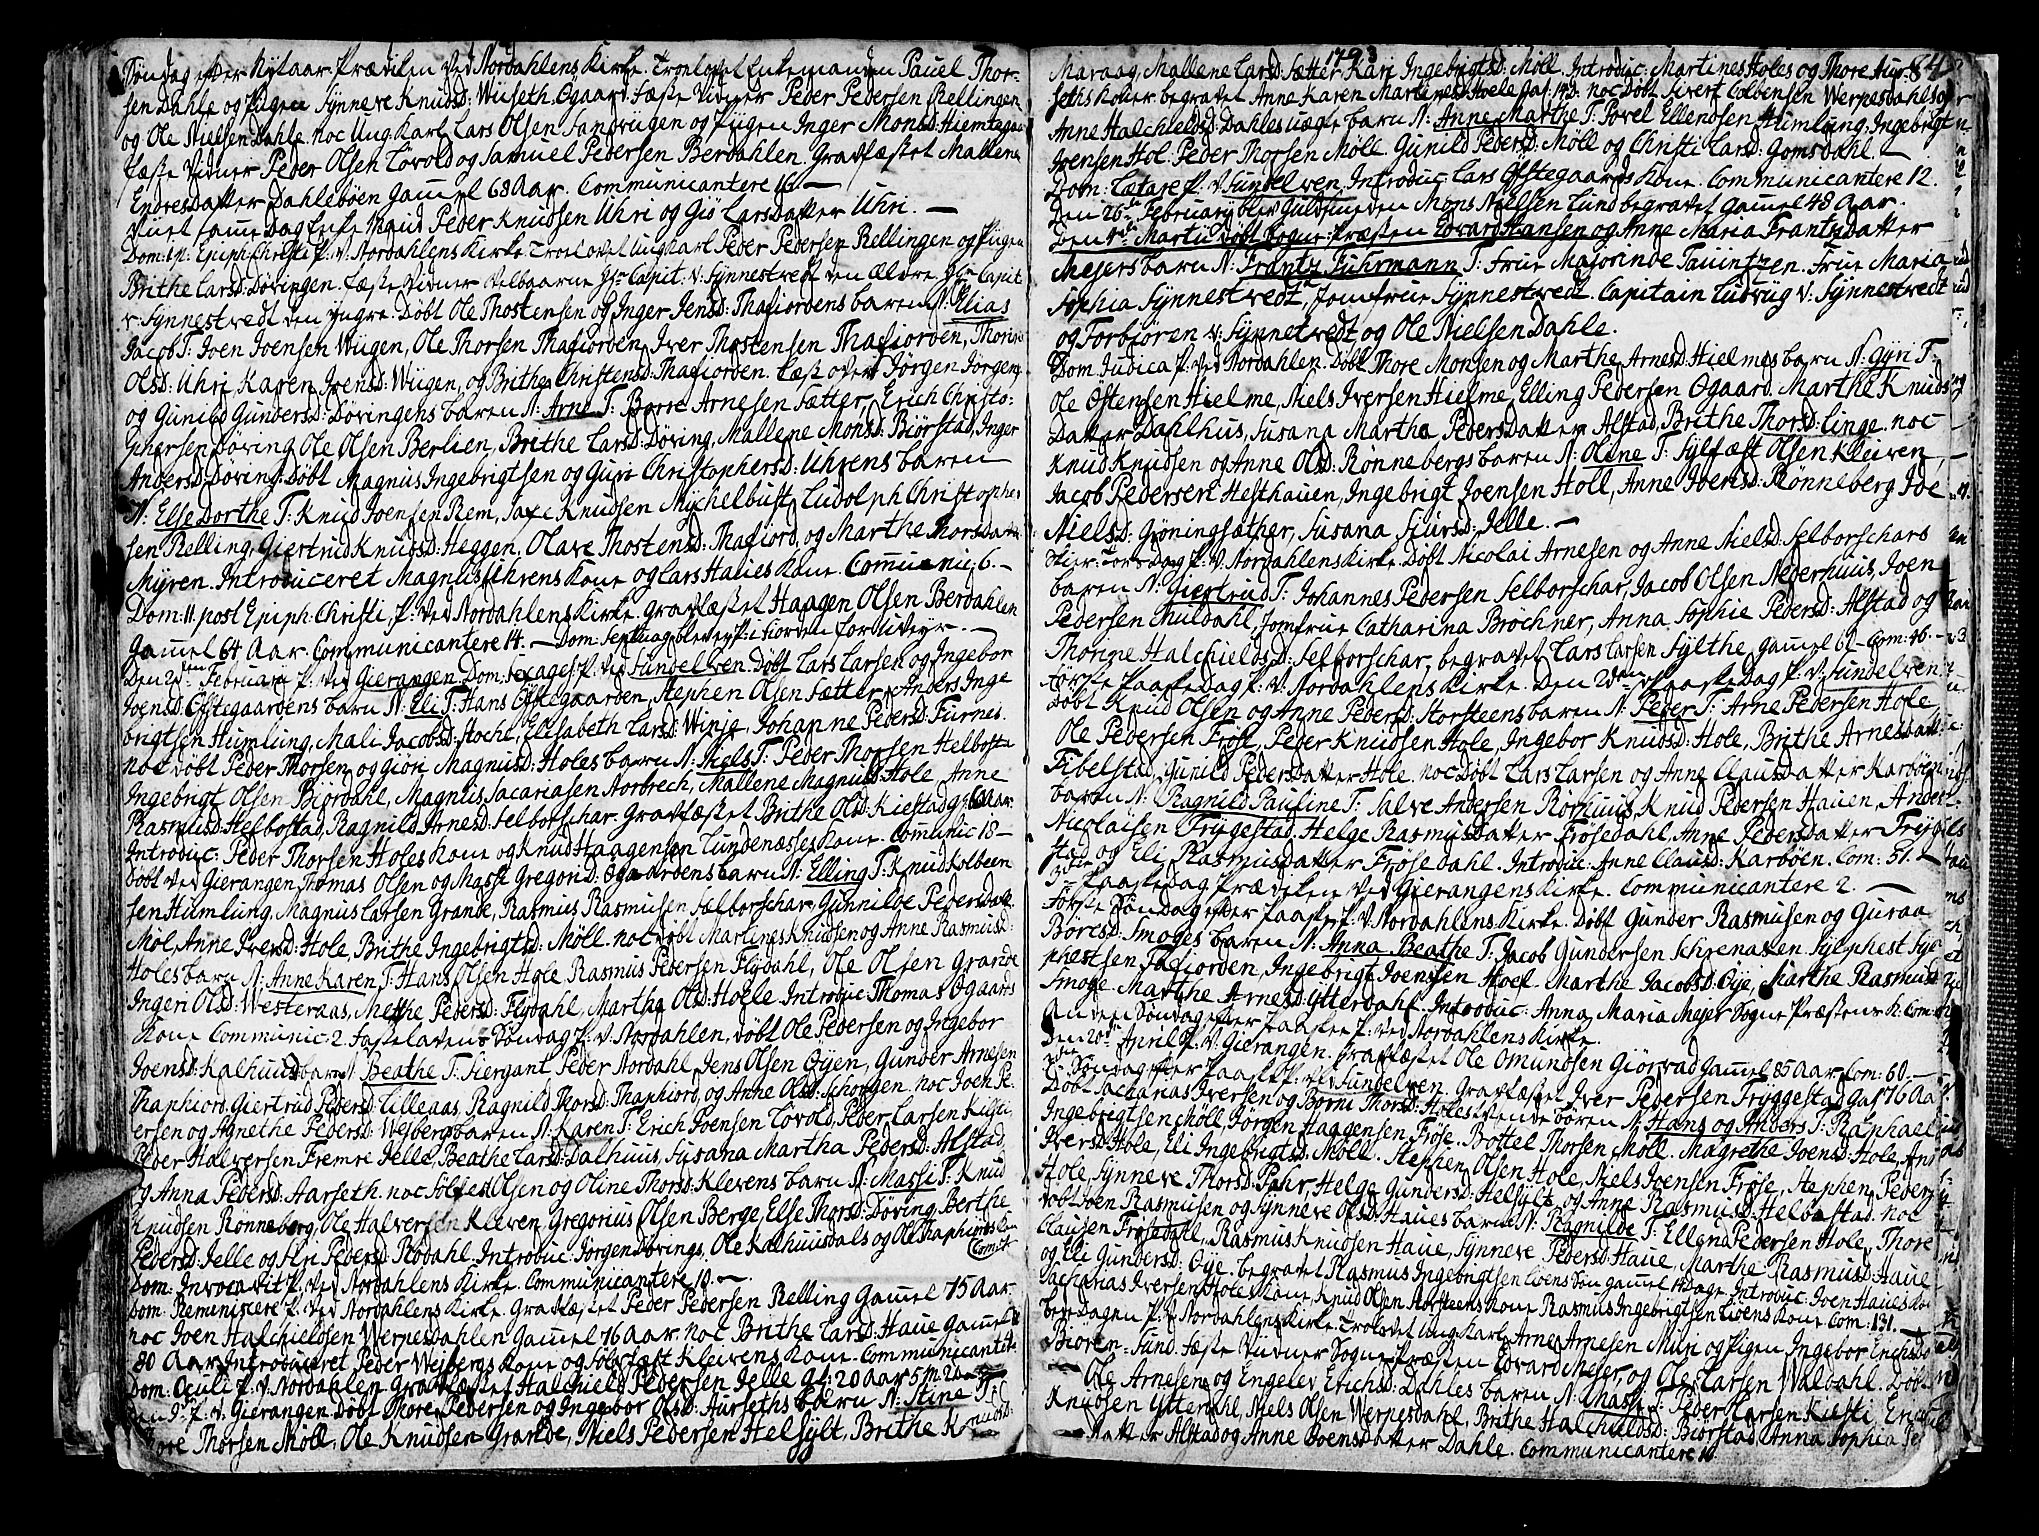 Søndag efter Nytaar Prædiken ved Nordahlens Kirke. Trolovet Enkemanden Pauel Thor-
sen Dahle og Pigen Synneve Knudsd: Wuseth. Ogaard. Fæste Vidner Peder Pedersen Rellingen
og Ole Nielsen Dahle noc Ung Karl Lars Olsen Sandvigen og Pigen Inger Monsd: Hiemtegaa
Fæste Vidner Peder Olsen Løvold og Samuel Pedersen Berdahlen. Gravfæstet Mallene
Endresdatter Dahlebøen Gamel 68 Aar. Communicantere 16 —
Viiet samme Dag Enke Mand Peder Knudsen Uhri og Giø Larsdatter Uhri. —
Dom: 1 p: Epiph: Christi P: v: Nordahlens Kirke Trolovet Ung Karl Peder Pedersen Rellingen og Pigen
Brithe Larsd: Døvingen. Fæste Vidner Velbaarne Hr: Capit: v: Synnestvedt den Ældre Hr: Capit
v: Synnestvedt den yngre. Døbt Ole Thostensen og Inger Jensd: Thafiordens baren N: Elias
Jacob T: Joen Joensen Wiigen, Ole Thorsen Thafiorden, Iver Thostensen Thafiorden, Thorine
Olsd: Uhri, Karen Joensd: Wiigen, og Brithe Christensd: Thafiorden. Læst over Jørgen Jørgens
og Gunild Gundersd: Døvingens baren N: Arne T: Borre Arnesen Sætter, Erich Christo:
phersen Døving Ole Olsen Berlien, Brithe Larsd: Døving, Mallene Monsd: Biørstad, Inger
Andersd: Døving. Døbt Magnus Ingebrigtsen og Guri Christophersd: Uhrens baren
N: Else Dorthe T: Knud Joensen Rem, Saxe Knudsen Myckelbust, Ludolph Christophe
sen Relling, Giertrud Knudsd: Heggen, Olave Thostensd: Thafiord, og Marthe Thorsdatter
Myren. Introduceret Magnus Uhrens Kone og Lars Haues Kone. Communic: 6. —
Dom: 11 post Epiph: Christi, P: ved Nordahlens Kirke. Gravfæstet Haagen Olsen Berdahlen
Gamel 64 Aar. Communicantere 14. — Dom: Septuag: blev ey P: i Fiorden for Uveyr. —
Den 2den Februarii P: ved Gierangen. Dom: Sexages: P: ved Sundelven. Døbt Lars Larsen og Ingebor
Joensd: Ofstegaardens barn N: Eli T: Hans Ofstegaarden, Stephen Olsen Sætter, Anders Inge
brigtsen Humlung, Mali Jacobsd: Stoche, Elisabeth Larsd: Winje, Johanne Pedersd: Furnes.
noc døbt Peder Thorsen og Giori Magnusd: Holes barn N: Niels T: Peder Thorsen Helbosta
Ingebrigt Olsen Biørdahl, Magnus Sacariasen Norbrech, Mallene Magnusd: Hole, Anne
Rasmusd: Helbostad, Ragnild Arnesd: Selborschar. Gravfæstet Brithe Olsd: Kiestad g: 60 Aar.
Introduc: Peder Thorsen Holes Kone og Knud Haagensen Lundenæsses Kone. Comunic 18 —
Døbt ved Gierangen Thomas Olsen og Massi Gregorisd: Ogaardens barn N: Elling T: Knud Kolbeen
sen Humlung, Magnus Larsen Grande, Rasmus Rasmusen Selborschar Gunnilde Pedersdatt
Møl, Anne Iversd: Hole, Brithe Ingebrigtsd: Møll. noc døbt Martines Knudsen og Anne Rasmusd:
Holes barn N: Anne Karen T: Hans Olsen Hole Rasmus Pedersen Flydahl, Ole Olsen Grande
Ingeri Olsd: Westeraas, Mette Pedersd: Flydahl, Martha Olsd: Hoele Introduc Thomas Ogaards
Kone Communic: 2 Fastelavens Søndag P: v: Nordahlen, døbt Ole Pedersen og Ingebor
Joensd: Kalhuusd: barn N: Beathe T: Siergant Peder Nordahl, Jens Olsen Öyen, Gunder Arnesen
Thaphiord Giertrud Pedersd: Lilleaas, Ragnild Thorsd: Thaphiord, og Anne Olsd: Schoggen. noc Joen Pe-
ersen og Agnethe Pedersd: Wejbergs baren N: Karen T: Erich Joensen Løvold, Peder Larsen Kilsti
Peder Halversen Fremre Jelle, Beathe Larsd: Dalhuus, Susana Martha Pedersd: Alstad,
og Anna Pedersd: Aarseth. noc Sølfest Olsen og Oline Thorsd: Klevens barn N: Massi T: Knud
Knudsen Rønneberg, Ole Halversen Kleven, Gregorius Olsen Berge, Else Thorsd: Døving, Berthe
Pedersd: Jelle og Siri Pedersd: Rødahl. Introduc: Jørgen Døvings, Ole Kalhuusdals og Ole Thaphiords Kone
Dom: Invocavit P: ved Nordahlens Kirke. Communicantere 10 —
Dom: Reminiscere P: ved Nordahlens Kirke. Gravfæstet Peder Pedersen Relling Gamel 75 Aar.
noc Joen Halchieldsen Wernesdahlen Gamel 76 Aar. noc Brithe Larsd: Haue Gamel
80 Aar Introduceret Peder Wejbergs Kone og Sølfest Kleivens Kone. Communicante
Dom: Oculi P: v: Nordahlen Gravfæstet Halchield Pedersen Jelle Gl: 20 Aar 5 M 2
Den 9de P: v: Gierangen Døbt Thore Pedersen og Ingebor Olsd: Aurseths barn N: Stine T:
Thore Thorsen Møll, Ole Knudsen Grande, Niels Pedersen Helsylt, Brithe Knudsd:
1793
84
Maraag, Mallene Larsd: Sætter Kari Ingebrigtsd: Møll. Introduc: Martines Holes og Thore Aur-
seths Koner begravet Anne Karen Martinesd: Hoele gal: 14 D: noc Døbt Sivert Colbensen Wernesdahls og
Anne Halchieldsd: Dahles uægte barn N: Anne Marthe T: Povel Ellendsen Humlung, Ingebrigt
Joensen Hol. Peder Thorsen Møll Gunild Pedersd: Møll og Christi Larsd: Gomsdahl. —
Dom: Lætare P: v: Sundelven, Introduc: Lars Ofstegaards Kone. Communicantere 12.
Den 26de February blev Guldsmeden Mons Nielsen Lund begravet gamel 48 Aar.
Den 1de Martii døbt Sogne-Præsten Edvard Hansen og Anne Maria Frantzdatter
Mejers barn N: Frantz Fuhrmann T: Frue Majorinde Tauintzen. Frue Maria
Sophia Synnestvedt, Jomfrue Synnestvedt. Capitain Ludvig v: Synnestvedt
og Torbiøren v: Synnetvedt og Ole Nielsen Dahle.
Dom Judica P: ved Nordahlen. Døbt Thore Monsen og Marthe Arnesd: Hielmes barn N: Gyri T:
Ole Østensen Hielme, Niels Iversen Hielme, Elling Pedersen Ogaard, Marthe Knuds
datter Dahlhus, Susana Martha Pedersdatter Alstad, Brithe Thorsd: Linge. noc
Knud Knudsen og Anne Olsd: Rønnebergs baren N: Oline T: Sylfæst Olsen Kleiven,
Jacob Pedersen Hesthauen, Ingebrigt Joensen Holl, Anne Joensd: Rønneberg Joe
Nielsd: Grøningsæther, Susana Siursd: Jelle. —
Skier-Torsdag P: v: Nordahlens Kirke. Døbt Nicolai Arnesen og Anne Nielsd: Selborschars
baren N: Giertrud T: Johannes Pedersen Selborschar, Jacob Olsen Nederhuus, Joen
Pedersen Muldahl, Jomfrue Catharina Brøchner, Anna Sophie Pedersd: Alstad og
Thorine Halchieldsd: Selborschar, begravet Lars Larsen Sylthe, gamel 62 Com: 46 —
Første Paaskedag P: v: Nordahlens Kirke. Den 2den Paaskedag P: v: Sundelven
Døbt Knud Olsen og Anne Pedersd: Storsteens baren N: Peder T: Arne Pedersen Hole,
Ole Pedersen Frøse, Peder Knudsen Hole, Ingebor Knudsd: Hole, Brithe Arnesdatter
Fibelstad Gunild Pedersdatter Hole. noc Døbt Lars Larsen og Anne Clausdatter Karbøens
baren N: Ragnild Pauline T: Salve Andersen Rørhuus, Knud Pedersen Hauen, Anders
Nicolaisen Tryggestad, Helge Rasmusdatter Frøsedahl, Anne Pedersdatter Trygge
stad og Eli Rasmusdatter Frøsedahl. Introduc: Anne Clausd: Karbøen. Com: 51. —
3die Paaskedag Prædiken ved Gierangens Kirke. Communicantere 2. —
Første Søndag efter Paaske P: v: Nordahlens Kirke. Døbt Gunder Rasmusen og Guraa
Børesd: Smoges baren N: Anna Beathe T: Jacob Gundersen Schrenaven Sylphest Syl
phestsen Tafiorden, Ingebrigt Joensen Hoel. Marthe Jacobsd: Øye, Marthe Rasmusd
Smoge Marthe Arnesd: Ytterdahl. Introduc: Anna Maria Mejer Sogne Præstens K: Com:
Anden Søndag efter Paaske P: ved Nordahlens Kirke.
Den 20de April P: v: Gierangen. Gravfæstet Ole Omundsen Giørvad Gamel 85 Aar. Com: 60. —
3die Søndag efter Paaske P: ved Sundelven. Gravfæstet Iver Pedersen Tryggestad Gaf 76 Aar
Døbt Sacharias Iversen og Børni Thorsd: Holes tvende børen N: Hans og Anders T: Raphael
Ingebrigtsen Møll, Jørgen Haagensen Frøse. Bottel Thorsen Møll. Magrethe Joensd: Hole, Ane
Iversd: Hole, Eli Ingebrigtsd: Møll. Stephen Olsen Hole, Niels Joensen Frøse, Stephen Peders
Hole, Synneve Thorsd: Pahr, Helge Gundersd: Helsylt, og Anne Rasmusd: Helbostad. noc
Døbt Joen Rasmusen og Synneve Olsd: Haues barn N: Ragnilde T: Ellend Pedersen Hole, Thore
Clausen Frøsedahl, Rasmus Knudsen Haue, Synneve Pedersd: Haue, Marthe Rasmusd: Haue
og Eli Gundersd: Øye. begravet Rasmus Ingebrigtsen Livens Søn gamel 14 Dage. Introduc: Joen Haues Kone
Sacharias Iversen Holes Kone, Knud Olsen Storsteens Kone Rasmus Ingebrigtsen Livens Kone Com: 131. —
Bededagen P: v: Nordahlens Kirke Trolovet Ung Karl Arne Arnesen Muri og Pigen Ingebor Erichsd
Biøren-Sund. Fæste Vidner Sogne Præsten Edvard Mejer, og Ole Larsen Waldahl. Døb
Ole Arnesen og Engelev Erichsd: Dahles baren N: Massi T: Peder Larsen Kilsti, Erich
Knudsen Ytterdahl, Niels Olsen Wernesdahl, Brithe Halchieldsd: Biørstad, Anna Sophia Pe
datter Alstad og Anne Joensdatter Dahle. Communicantere 10.